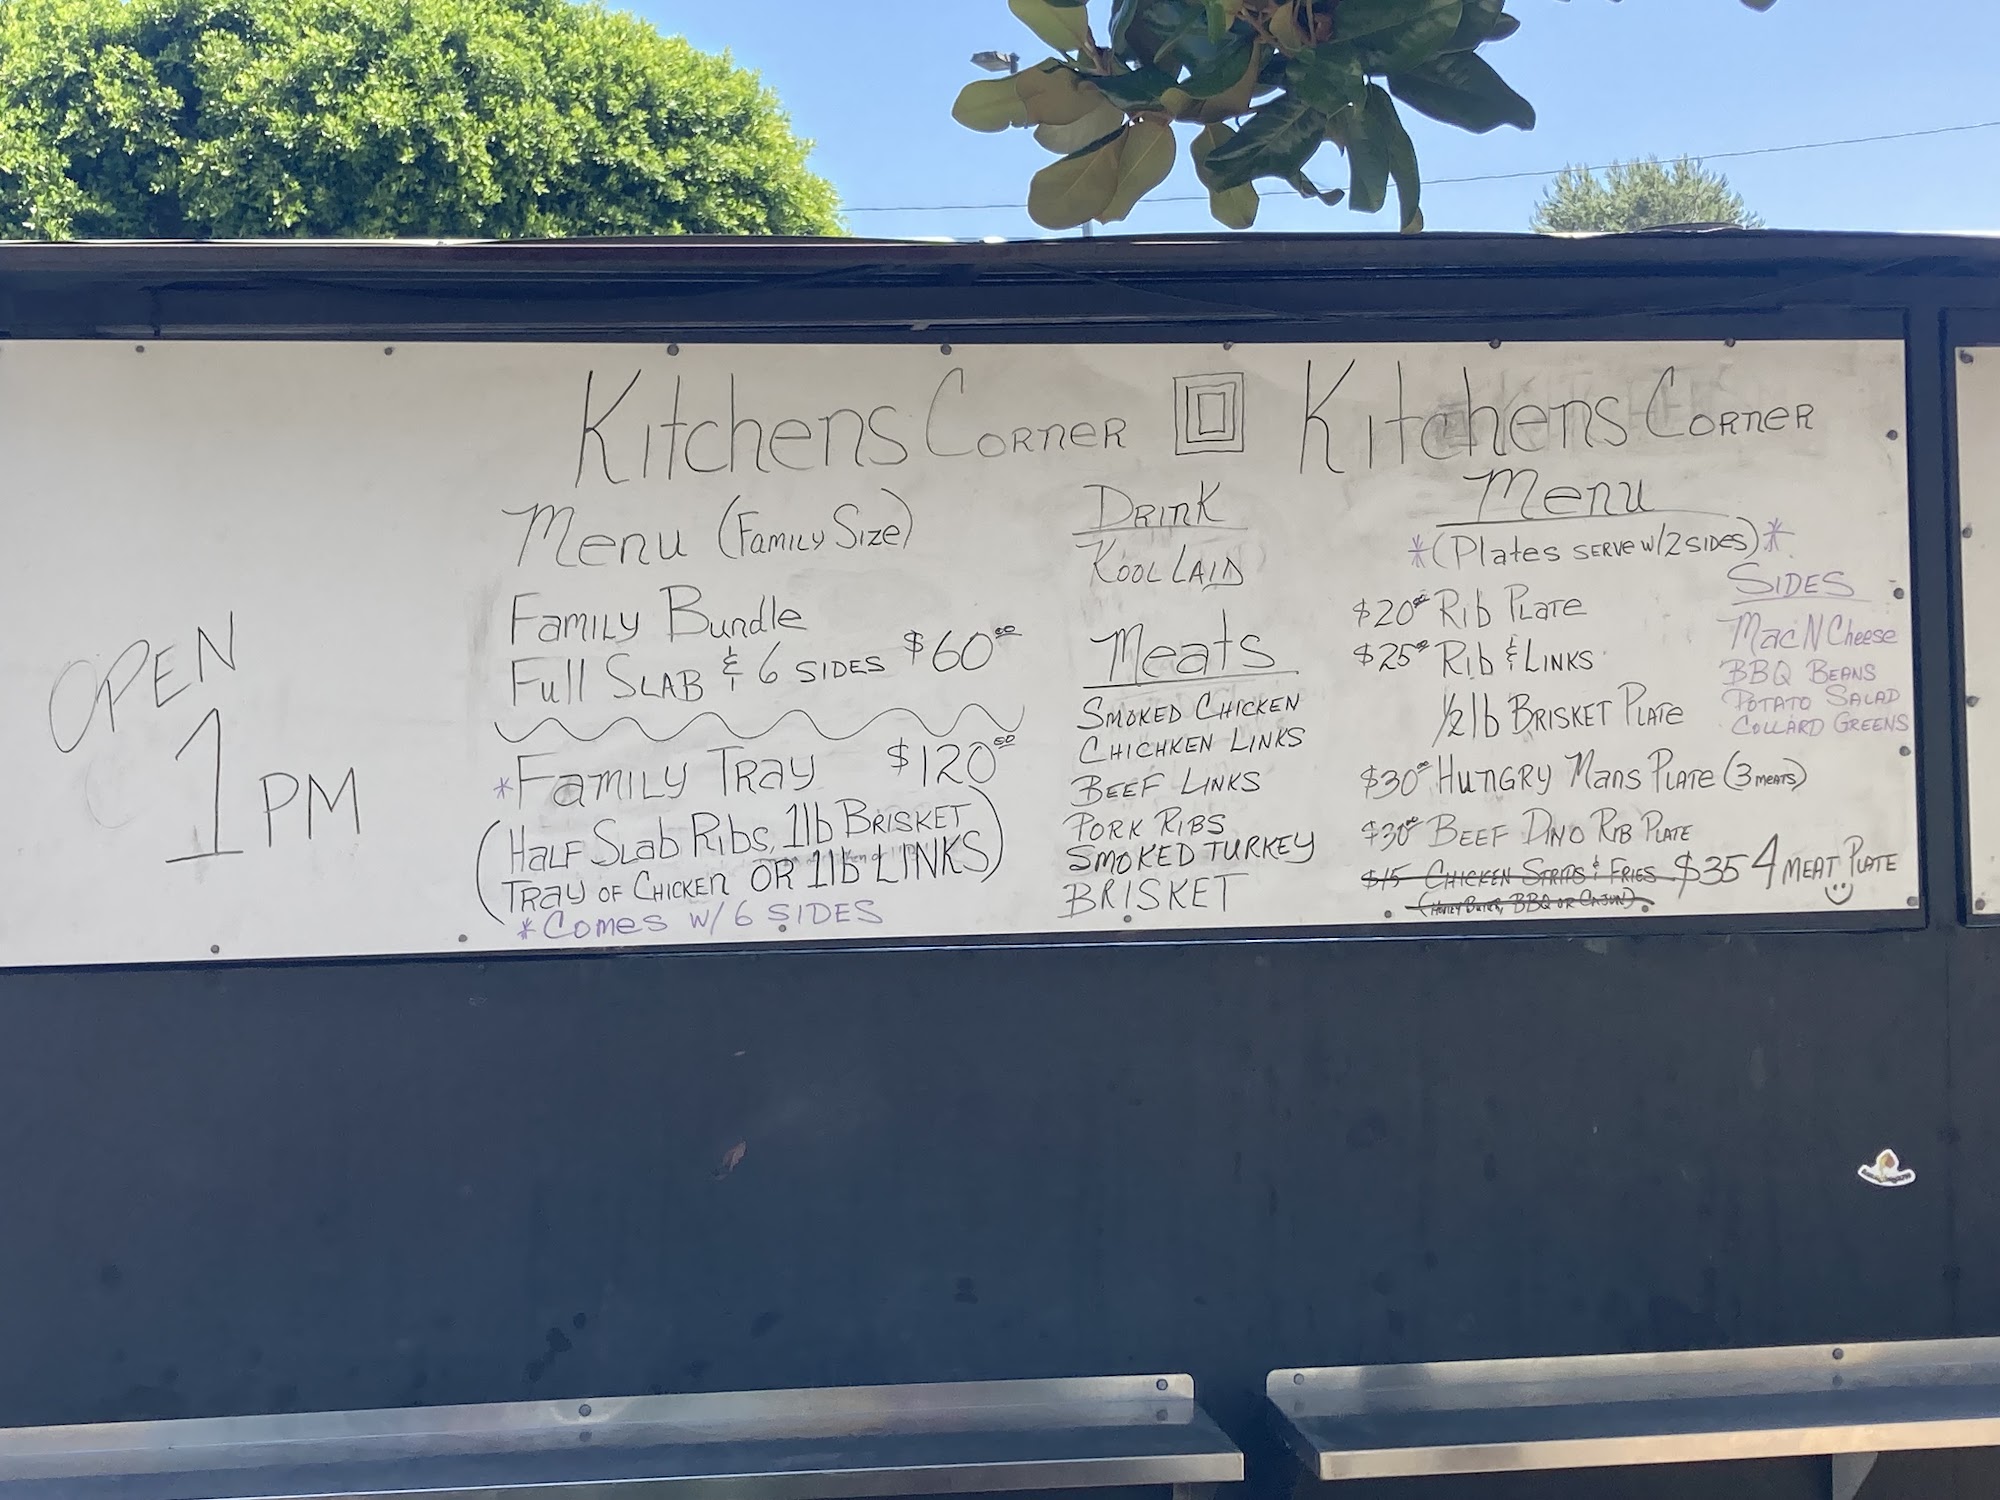 Kitchens Corner
Kitchens Corner
OPEN
1 PM
Menu (Family Size)
Family Bundle
Full Slab & 6 sides $60.00
*Family Tray $120.00
(Half Slab Ribs, 1lb Brisket
Tray of Chicken OR 1lb LINKS)
*Comes w/ 6 SIDES
Drink
Kool Laid
Meats
Smoked Chicken
Chichken Links
Beef Links
Pork Ribs
Smoked Turkey
BRISKET
Menu
*(Plates serve w/2 sides)*
$20.00 Rib Plate
$25.00 Rib & Links
1/2 lb Brisket Plate
$30.00 Hungry Mans Plate (3 meats)
$30.00 Beef Dino Rib Plate
$15 Chicken Strips & Fries
(Honey Butter, BBQ or Cajun)
$35 4 meat Plate
Sides
Mac N Cheese
BBQ Beans
Potato Salad
Collard Greens